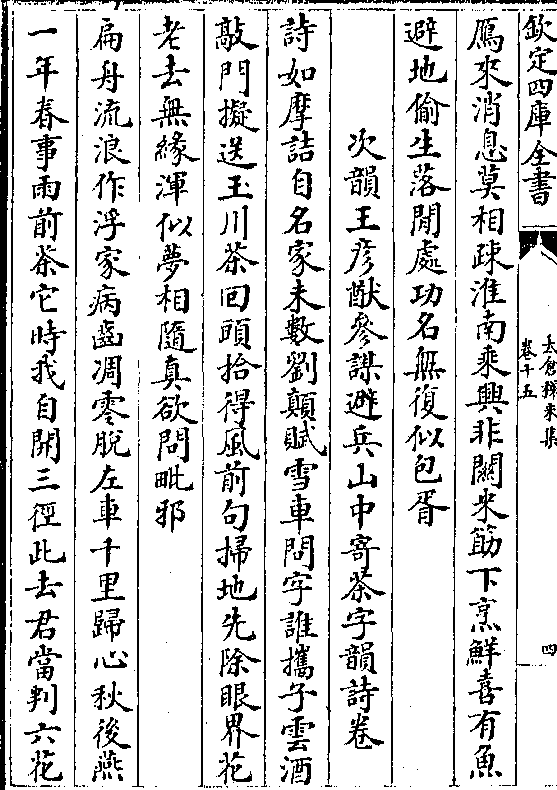 欽定四庫全書
太倉稊米集
卷十五
四
鴈來消息莫相疎淮南乘興非關米筯下烹鮮喜有魚
避地偷生落閒處功名無復似包胥
次韻王彦猷參謀避兵山中寄茶字韻詩卷
詩如摩詰自名家未數劉顛賦雪車問字誰攜子雲酒
敲門擬送玉川茶回頭拾得風前句掃地先除眼界花
老去無緣渾似夢相隨真欲問毗邪
扁舟流浪作浮家病齒凋零脫左車千里歸心秋後燕
一年春事雨前茶它時我自開三徑此去君當判六花